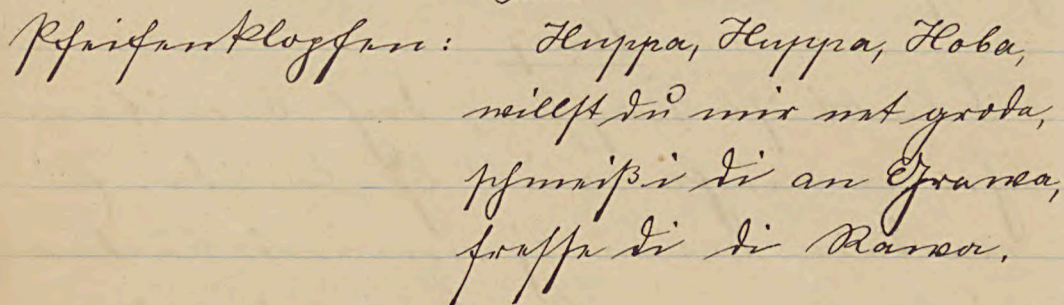 Pfeifenklopfen: Huppa, Huppa, Hoba,
willst du mir net groda,
schmeiß i di an Grawa,
fresse di di Rawa.